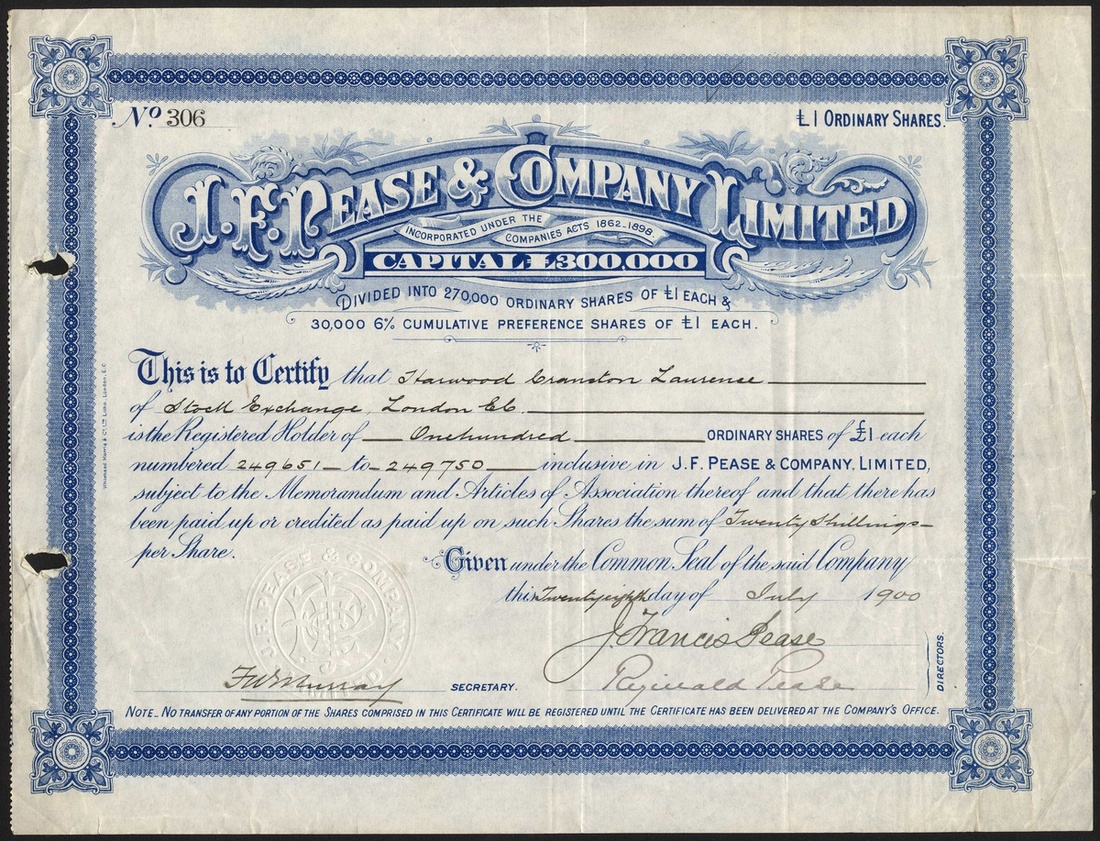 No. 306
£1 ORDINARY SHARES.
J. F. PEASE & COMPANY LIMITED
INCORPORATED UNDER THE COMPANIES ACTS 1862-1898.
CAPITAL £300,000
DIVIDED INTO 270,000 ORDINARY SHARES OF £1 EACH &
30,000 6% CUMULATIVE PREFERENCE SHARES OF £1 EACH.
This is to Certify that Harwood Cranston Laurense
of Stock Exchange, London EC.
is the Registered Holder of Onehundred ORDINARY SHARES OF £1 each
numbered 249651 to 249750 inclusive in J. F. PEASE & COMPANY, LIMITED,
subject to the Memorandum and Articles of Association thereof and that there has
been paid up or credited as paid up on such Shares the sum of Twenty Shillings
per Share.
Given under the Common Seal of the said Company
this Twentyeighth day of July 1900
J. Francis Pease
Reginald Pease
DIRECTORS.
F W Murray SECRETARY.
J. F. PEASE & COMPANY
NOTE. NO TRANSFER OF ANY PORTION OF THE SHARES COMPRISED IN THIS CERTIFICATE WILL BE REGISTERED UNTIL THE CERTIFICATE HAS BEEN DELIVERED AT THE COMPANY'S OFFICE.